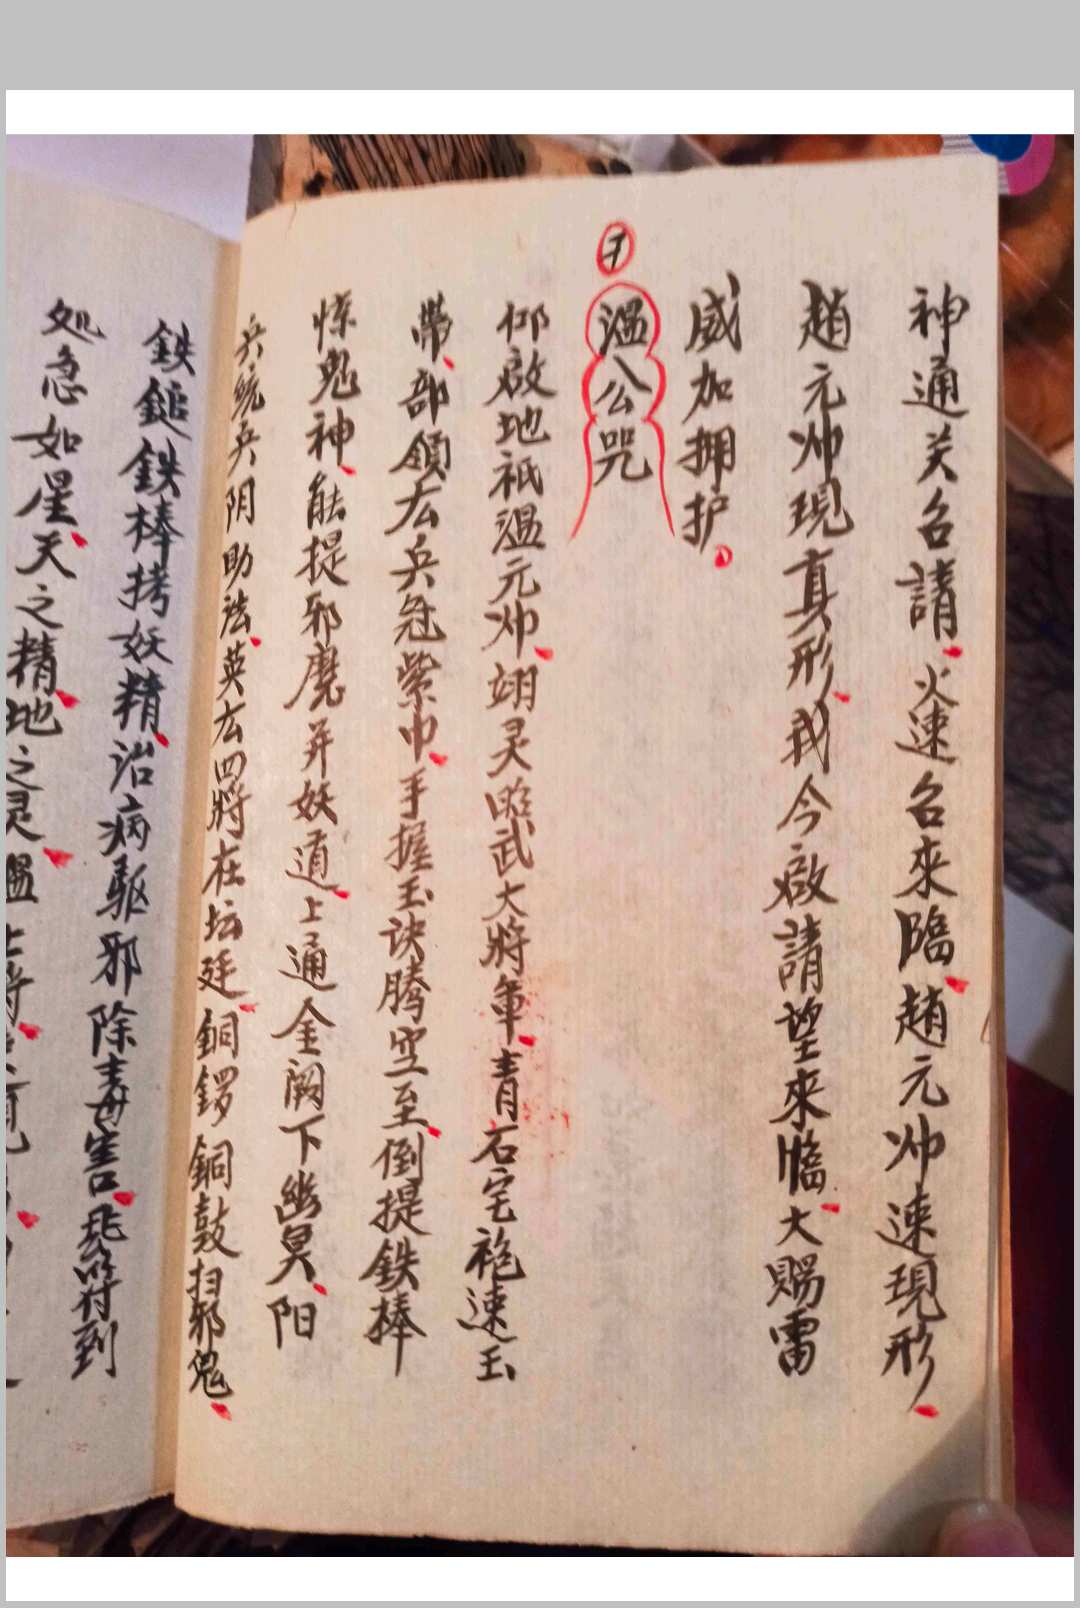 神通关名請火速名來臨趙元帅速現形
趙元帅現真形我今啟請望來臨大赐雷
威加拥护
溫公咒
仰啟地祇溫元帅翊灵昭武大將軍青石宅袍速玉
帶部領広兵冠紫巾手握玉诀腾空至倒提鉄棒
惊鬼神能提邪魔并妖道上通金阙下幽冥阳
兵统兵阴助法英広四將在坛廷銅鑼銅鼓扫邪鬼
鉄鎚鉄棒拷妖精治病驱邪除毒害符到
处急如星天之精地之灵